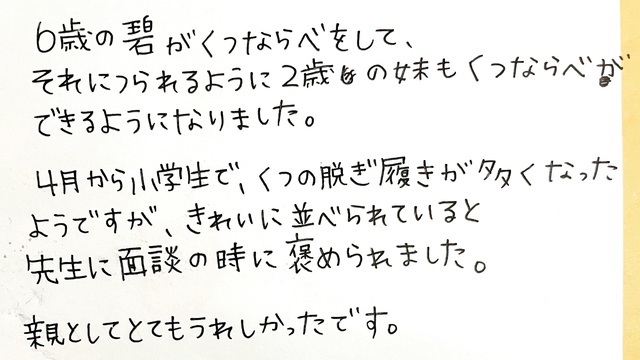 6歳の碧がくつならべをして、
それにつられるように2歳の妹もくつならべが
できるようになりました。
4月から小学生で、くつの脱ぎ履きが多くなった
ようですが、きれいに並べられていると
先生に面談の時に褒められました。
親としてとてもうれしかったです。